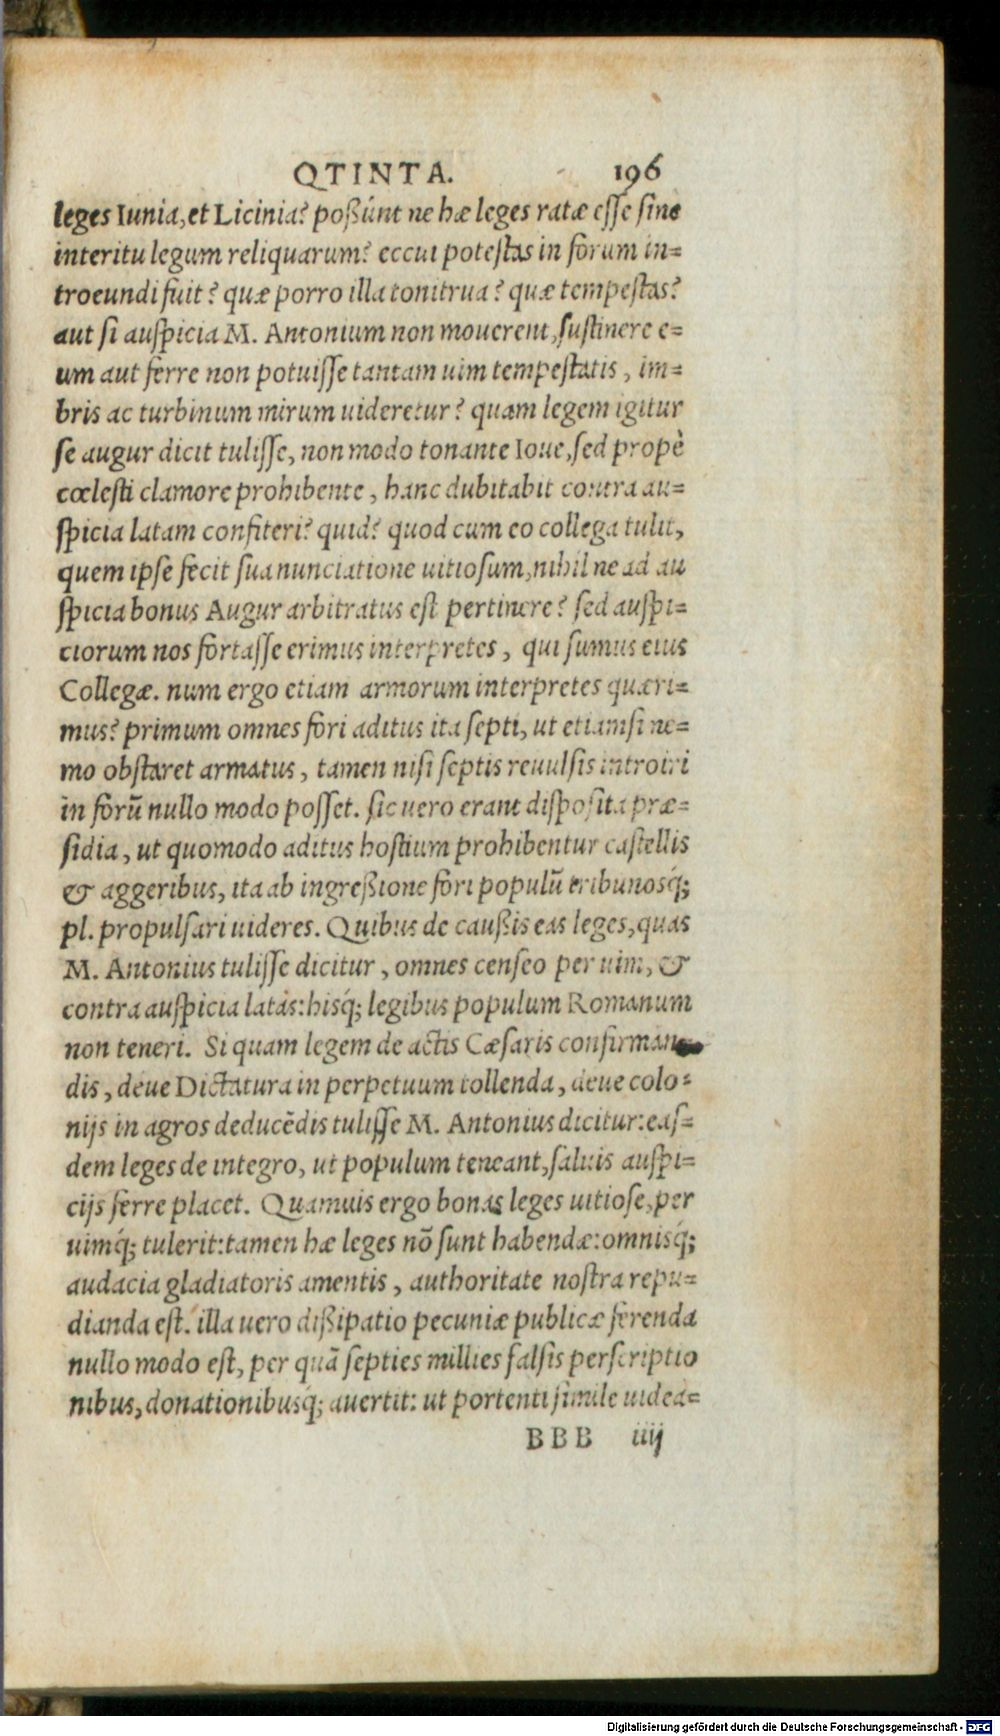 QTINTA. 196
leges Iunia, et Licinia? poßúnt ne hæ leges ratæ esse sine
interitu legum reliquarum? eccui potestas in forum in-
troeundi fuit? quæ porro illa tonitrua? quæ tempestas?
aut si auspicia M. Antonium non mouerent, sustinere e-
um aut ferre non potuisse tantam uim tempestatis, im-
bris ac turbinum mirum uideretur? quam legem igitur
se augur dicit tulisse, non modo tonante Ioue, sed propè
cœlesti clamore prohibente, hanc dubitabit contra au-
spicia latam confiteri? quid? quod cum eo collega tulit,
quem ipse fecit sua nunciatione uitiosum, nihil ne ad au
spicia bonus Augur arbitratus est pertinere? sed auspi-
ciorum nos fortasse erimus interpretes, qui sumus eius
Collegæ. num ergo etiam armorum interpretes quæri-
mus? primum omnes fori aditus ita septi, ut etiamsi ne-
mo obstaret armatus, tamen nisi septis reuulsis introiri
in forū nullo modo posset. sic uero erant disposita præ-
sidia, ut quomodo aditus hostium prohibentur castellis
& aggeribus, ita ab ingreßione fori populū tribunosq́;
pl. propulsari uideres. Quibus de caußis eas leges, quas
M. Antonius tulisse dicitur, omnes censeo per uim, &
contra auspicia latas: hisq́; legibus populum Romanum
non teneri. Si quam legem de actis Cæsaris confirman-
dis, deue Dictatura in perpetuum tollenda, deue colo-
nijs in agros deducēdis tulisse M. Antonius dicitur: eas-
dem leges de integro, ut populum teneant, saluis auspi-
cijs ferre placet. Quamuis ergo bonas leges uitiose, per
uimq́; tulerit: tamen hæ leges nō sunt habendæ: omnisq́;
audacia gladiatoris amentis, authoritate nostra repu-
dianda est. illa uero dißipatio pecuniæ publicæ ferenda
nullo modo est, per quā septies millies falsis perscriptio
nibus, donationibusq́; auertit: ut portenti simile uidea-
BBB iiij
Digitalisierung gefördert durch die Deutsche Forschungsgemeinschaft - DFG